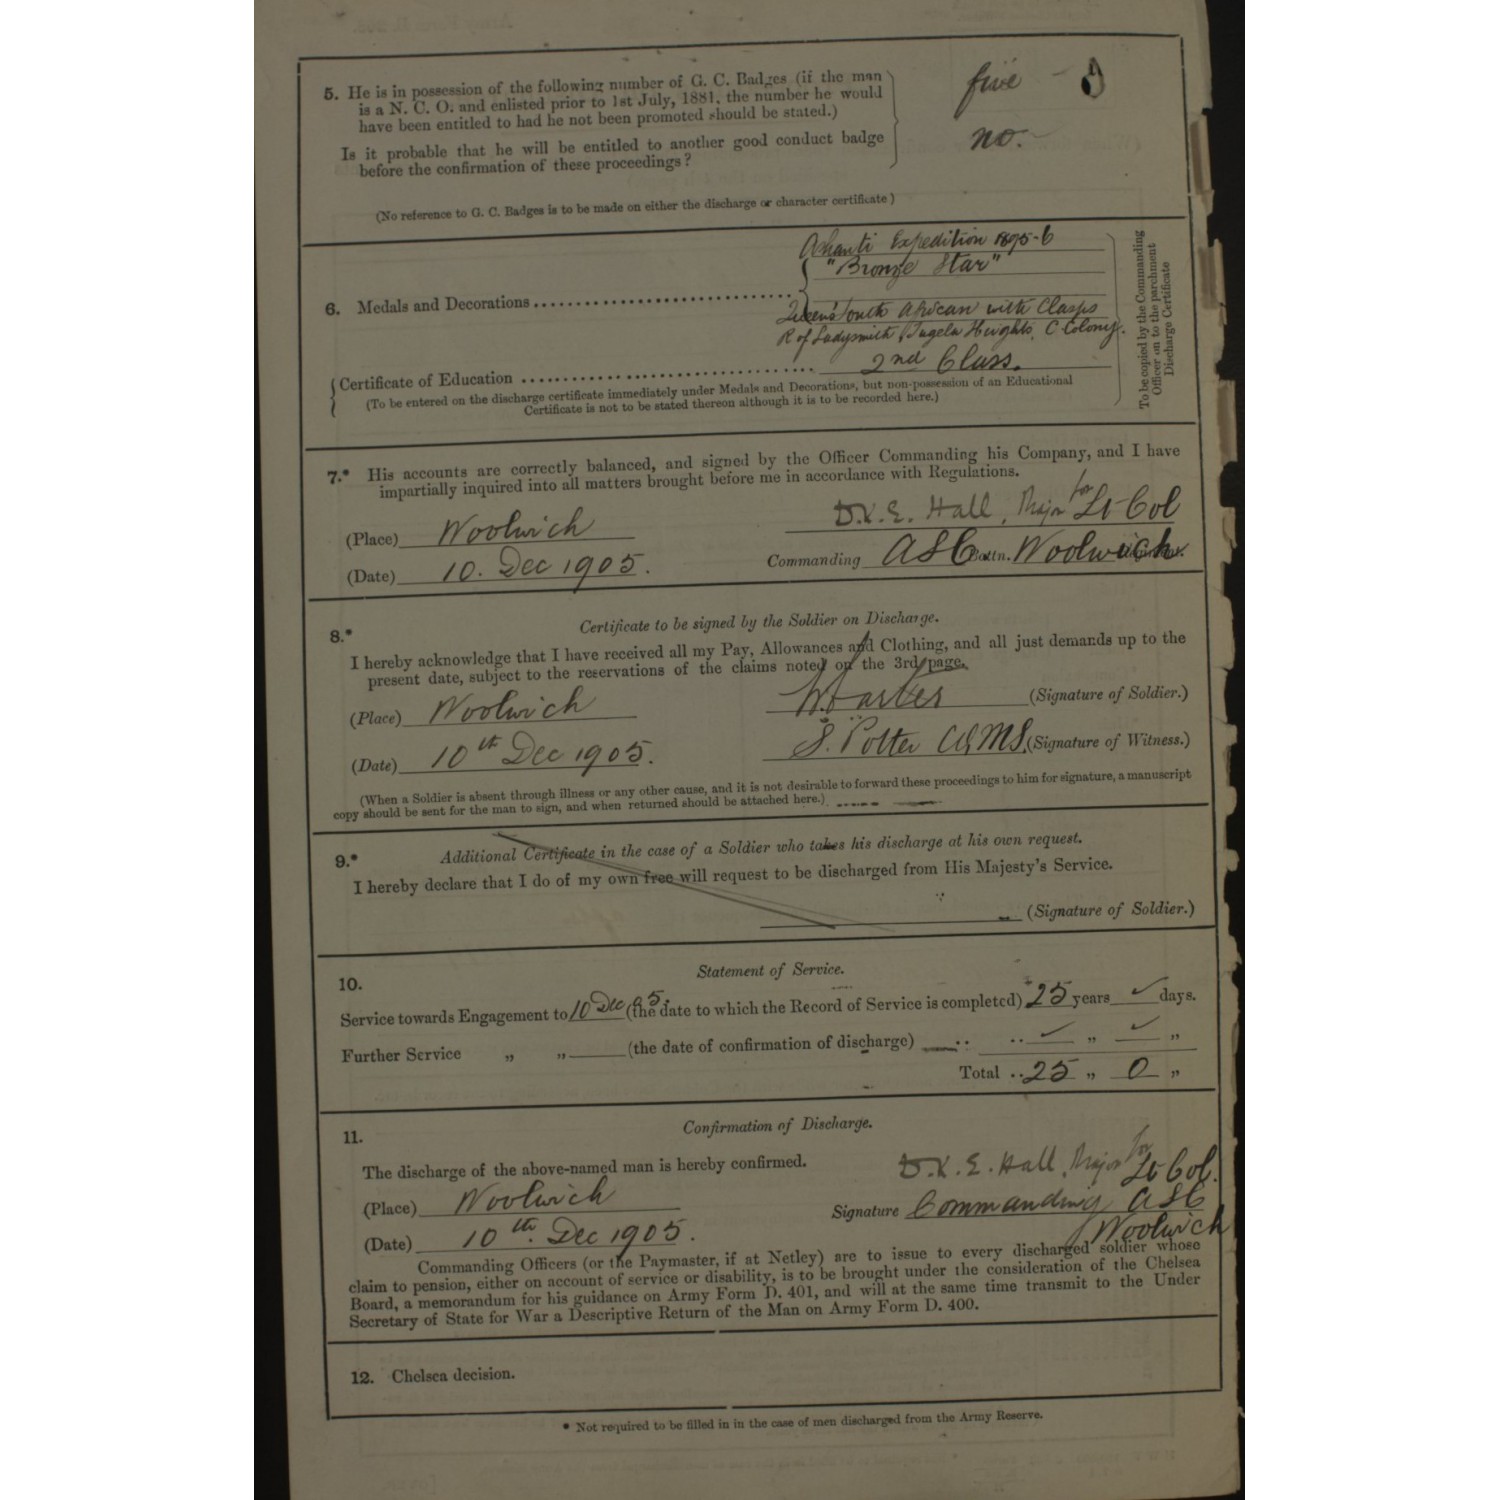 5. He is in possession of the following number of G. C. Badges (if the man
is a N. C. O. and enlisted prior to 1st July, 1881, the number he would
have been entitled to had he not been promoted should be stated.)
five
Is it probable that he will be entitled to another good conduct badge
before the confirmation of these proceedings?
no.
(No reference to G. C. Badges is to be made on either the discharge or character certificate)
Ashanti Expedition 1895-6
"Bronze Star"
6. Medals and Decorations
Queen's South African with Clasps
R of Ladysmith, Tugela Heights, C Colony.
Certificate of Education 2nd Class.
(To be entered on the discharge certificate immediately under Medals and Decorations, but non-possession of an Educational
Certificate is not to be stated thereon although it is to be recorded here.)
To be copied by the Commanding
Officer on to the parchment
Discharge Certificate
7.* His accounts are correctly balanced, and signed by the Officer Commanding his Company, and I have
impartially inquired into all matters brought before me in accordance with Regulations.
D.K.E. Hall, Major for Lt Col
(Place) Woolwich
Commanding ASC Battn. Woolwich
(Date) 10. Dec 1905.
8.* Certificate to be signed by the Soldier on Discharge.
I hereby acknowledge that I have received all my Pay, Allowances and Clothing, and all just demands up to the
present date, subject to the reservations of the claims noted on the 3rd page.
(Place) Woolwich (Signature of Soldier.)
(Date) 10th Dec 1905. S. Potter CQMS (Signature of Witness.)
(When a Soldier is absent through illness or any other cause, and it is not desirable to forward these proceedings to him for signature, a manuscript
copy should be sent for the man to sign, and when returned should be attached here.)
9.* Additional Certificate in the case of a Soldier who takes his discharge at his own request.
I hereby declare that I do of my own free will request to be discharged from His Majesty's Service.
(Signature of Soldier.)
10. Statement of Service.
Service towards Engagement to 10 Dec 05 (the date to which the Record of Service is completed) 25 years ✓ days.
Further Service " " (the date of confirmation of discharge) .. ✓ " ✓ "
Total .. 25 " 0 "
11. Confirmation of Discharge.
The discharge of the above-named man is hereby confirmed.
D.K.E. Hall, Major for Lt Col.
(Place) Woolwich
Signature Commanding ASC
Woolwich
(Date) 10th. Dec 1905.
Commanding Officers (or the Paymaster, if at Netley) are to issue to every discharged soldier whose
claim to pension, either on account of service or disability, is to be brought under the consideration of the Chelsea
Board, a memorandum for his guidance on Army Form D. 401, and will at the same time transmit to the Under
Secretary of State for War a Descriptive Return of the Man on Army Form D. 400.
12. Chelsea decision.
* Not required to be filled in in the case of men discharged from the Army Reserve.